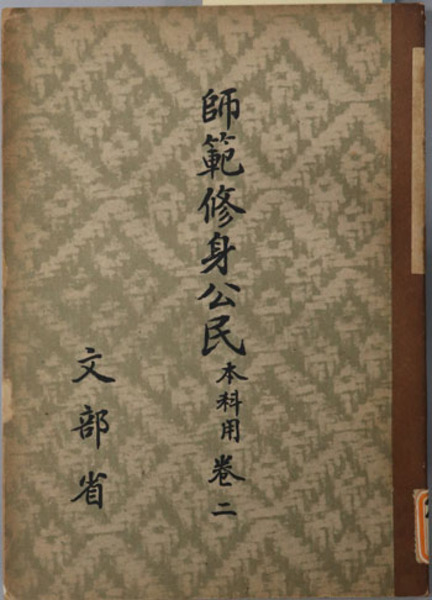 師範修身公民本科用 巻二
文部省